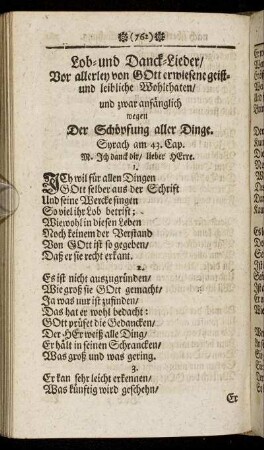 (762)
Lob- und Danck-Lieder/
Vor allerley von GOtt erwiesene geist-
und leibliche Wohlthaten/
und zwar anfänglich
wegen
Der Schöpfung aller Dinge.
Syrach am 43. Cap.
M. Ich danck dir/ lieber HErre.
1.
ICh wil für allen Dingen
GOtt selber aus der Schrift
Und seine Wercke singen
So viel ihr Lob betrift;
Wiewohl in diesen Leben
Noch keinem der Verstand
Von GOtt ist so gegeben/
Daß er sie recht erkant.
2.
Es ist nicht auszugründen/
Wie groß sie GOtt gemacht/
Ja was nur ist zufinden/
Das hat er wohl bedacht:
GOtt prüfet die Gedancken/
Der HErr weiß alle Ding/
Er hält in seinen Schrancken/
Was groß und was gering.
3.
Er kan sehr leicht erkennen/
Was künftig wird geschehn/
Er